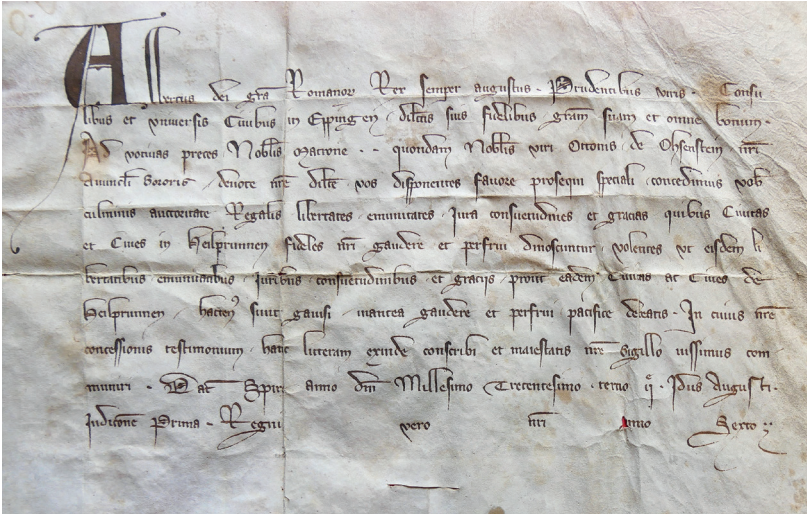 Albertus dei gra Romanor Rex semper augustus. Prudentibus viris. Consu
libus et vniuersis Ciuibus in Eppingen, dilcis suis fidelibus gram suam et omne bonum.
Ad votiuas preces. Nobilis Matrone .. quondam Nobilis viri Ottonis de Ohsenstein nri
Auunculi Sororis, deuote nre dilce, vos disponentes fauore prosequi speciali, concedimus vob
auctoritate Regalis libertates, emunitates, Jura consuetudines et gracias quibus Ciuitas
et Ciues in Heilprunnen, fideles nri gaudere et perfrui dinoscuntur, volentes vt eisdem li
bertatibus emunitatibus, Juribus, consuetudinibus et graciis, prout eadem Ciuitas ac Ciues de
Heilprunnen, hacten sunt gauisi, inantea gaudere et perfrui pacifice debeatis. In cuius nre
concessionis testimonium, hanc litteram exinde conscribi et maiestatis nre Sigillo iussimus com
muniri. Dat Spire anno dni Millesimo Trecentesimo tercio Idus Augusti.
Indictione Prima. Regni vero nri Anno Sexto